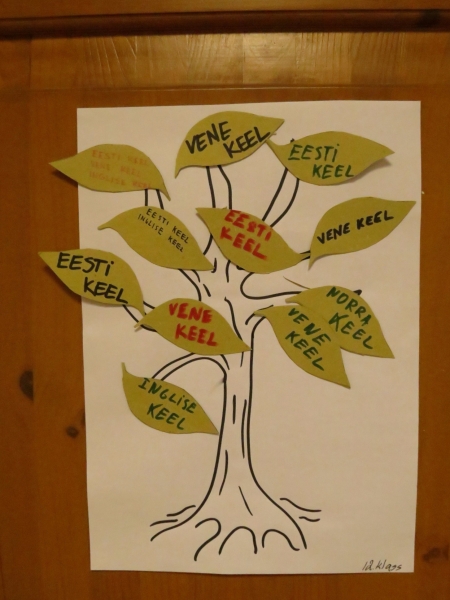 VENE
KEEL
EESTI KEEL
VENE KEEL
INGLISE KEEL
EESTI
KEEL
EESTI KEEL
INGLISE KEEL
EESTI
KEEL
VENE KEEL
EESTI
KEEL
VENE
KEEL
NORRA
KEEL
VENE
KEEL
INGLISE
KEEL
1d.klass